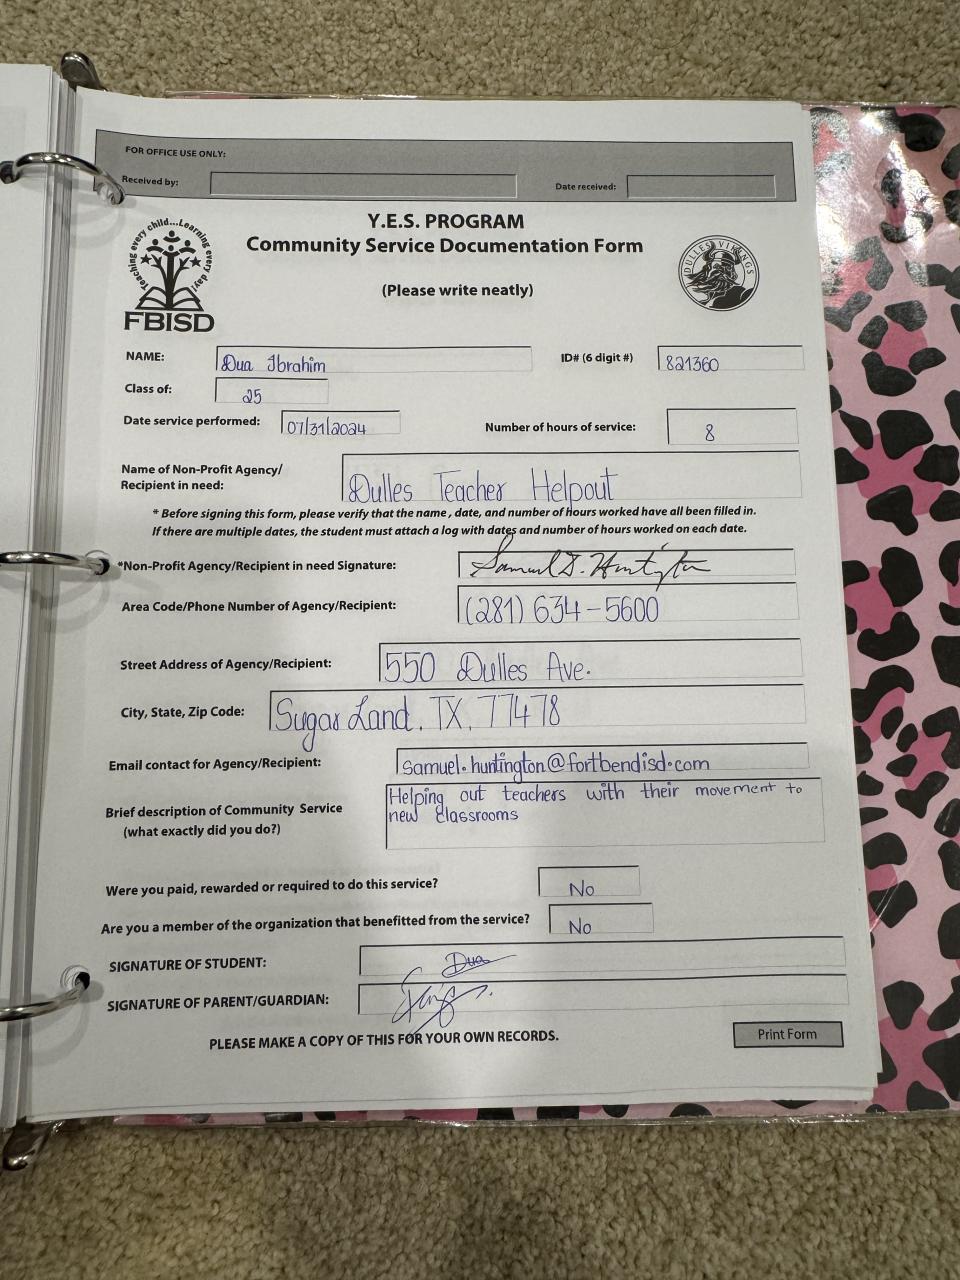 FOR OFFICE USE ONLY:
Received by:
Date received:
Teaching every child...Learning every day!
FBISD
Y.E.S. PROGRAM
Community Service Documentation Form
(Please write neatly)
DULLES VIKINGS
NAME: Dua Ibrahim
ID# (6 digit #) 821360
Class of: 25
Date service performed: 07/31/2024
Number of hours of service: 8
Name of Non-Profit Agency/
Recipient in need: Dulles Teacher Helpout
* Before signing this form, please verify that the name, date, and number of hours worked have all been filled in.
If there are multiple dates, the student must attach a log with dates and number of hours worked on each date.
*Non-Profit Agency/Recipient in need Signature: Samuel D. Huntington
Area Code/Phone Number of Agency/Recipient: (281) 634-5600
Street Address of Agency/Recipient: 550 Dulles Ave.
City, State, Zip Code: Sugar Land, TX, 77478
Email contact for Agency/Recipient: samuel.huntington@fortbendisd.com
Brief description of Community Service
(what exactly did you do?)
Helping out teachers with their movement to
new classrooms
Were you paid, rewarded or required to do this service? No
Are you a member of the organization that benefitted from the service? No
SIGNATURE OF STUDENT: Dua
SIGNATURE OF PARENT/GUARDIAN:
PLEASE MAKE A COPY OF THIS FOR YOUR OWN RECORDS.
Print Form